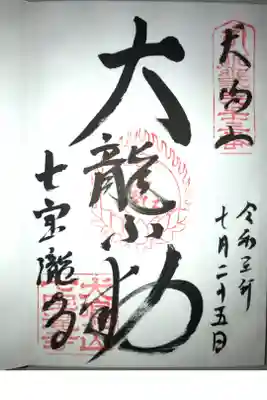 犬鳴山
令和三年
七月二十五日
大龍不動
七宝瀧寺